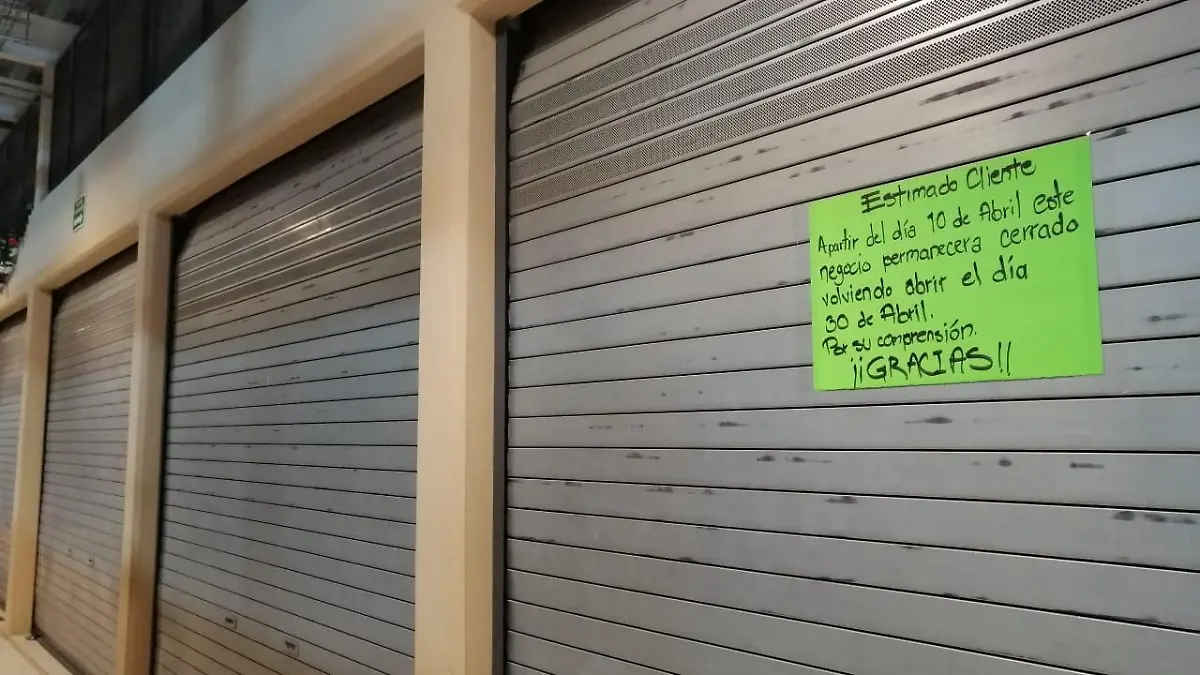 Estimado Cliente
Apartir del día 10 de Abril este
negocio permanecera cerrado
volviendo abrir el día
30 de Abril.
Por su comprensión.
¡¡GRACIAS!!